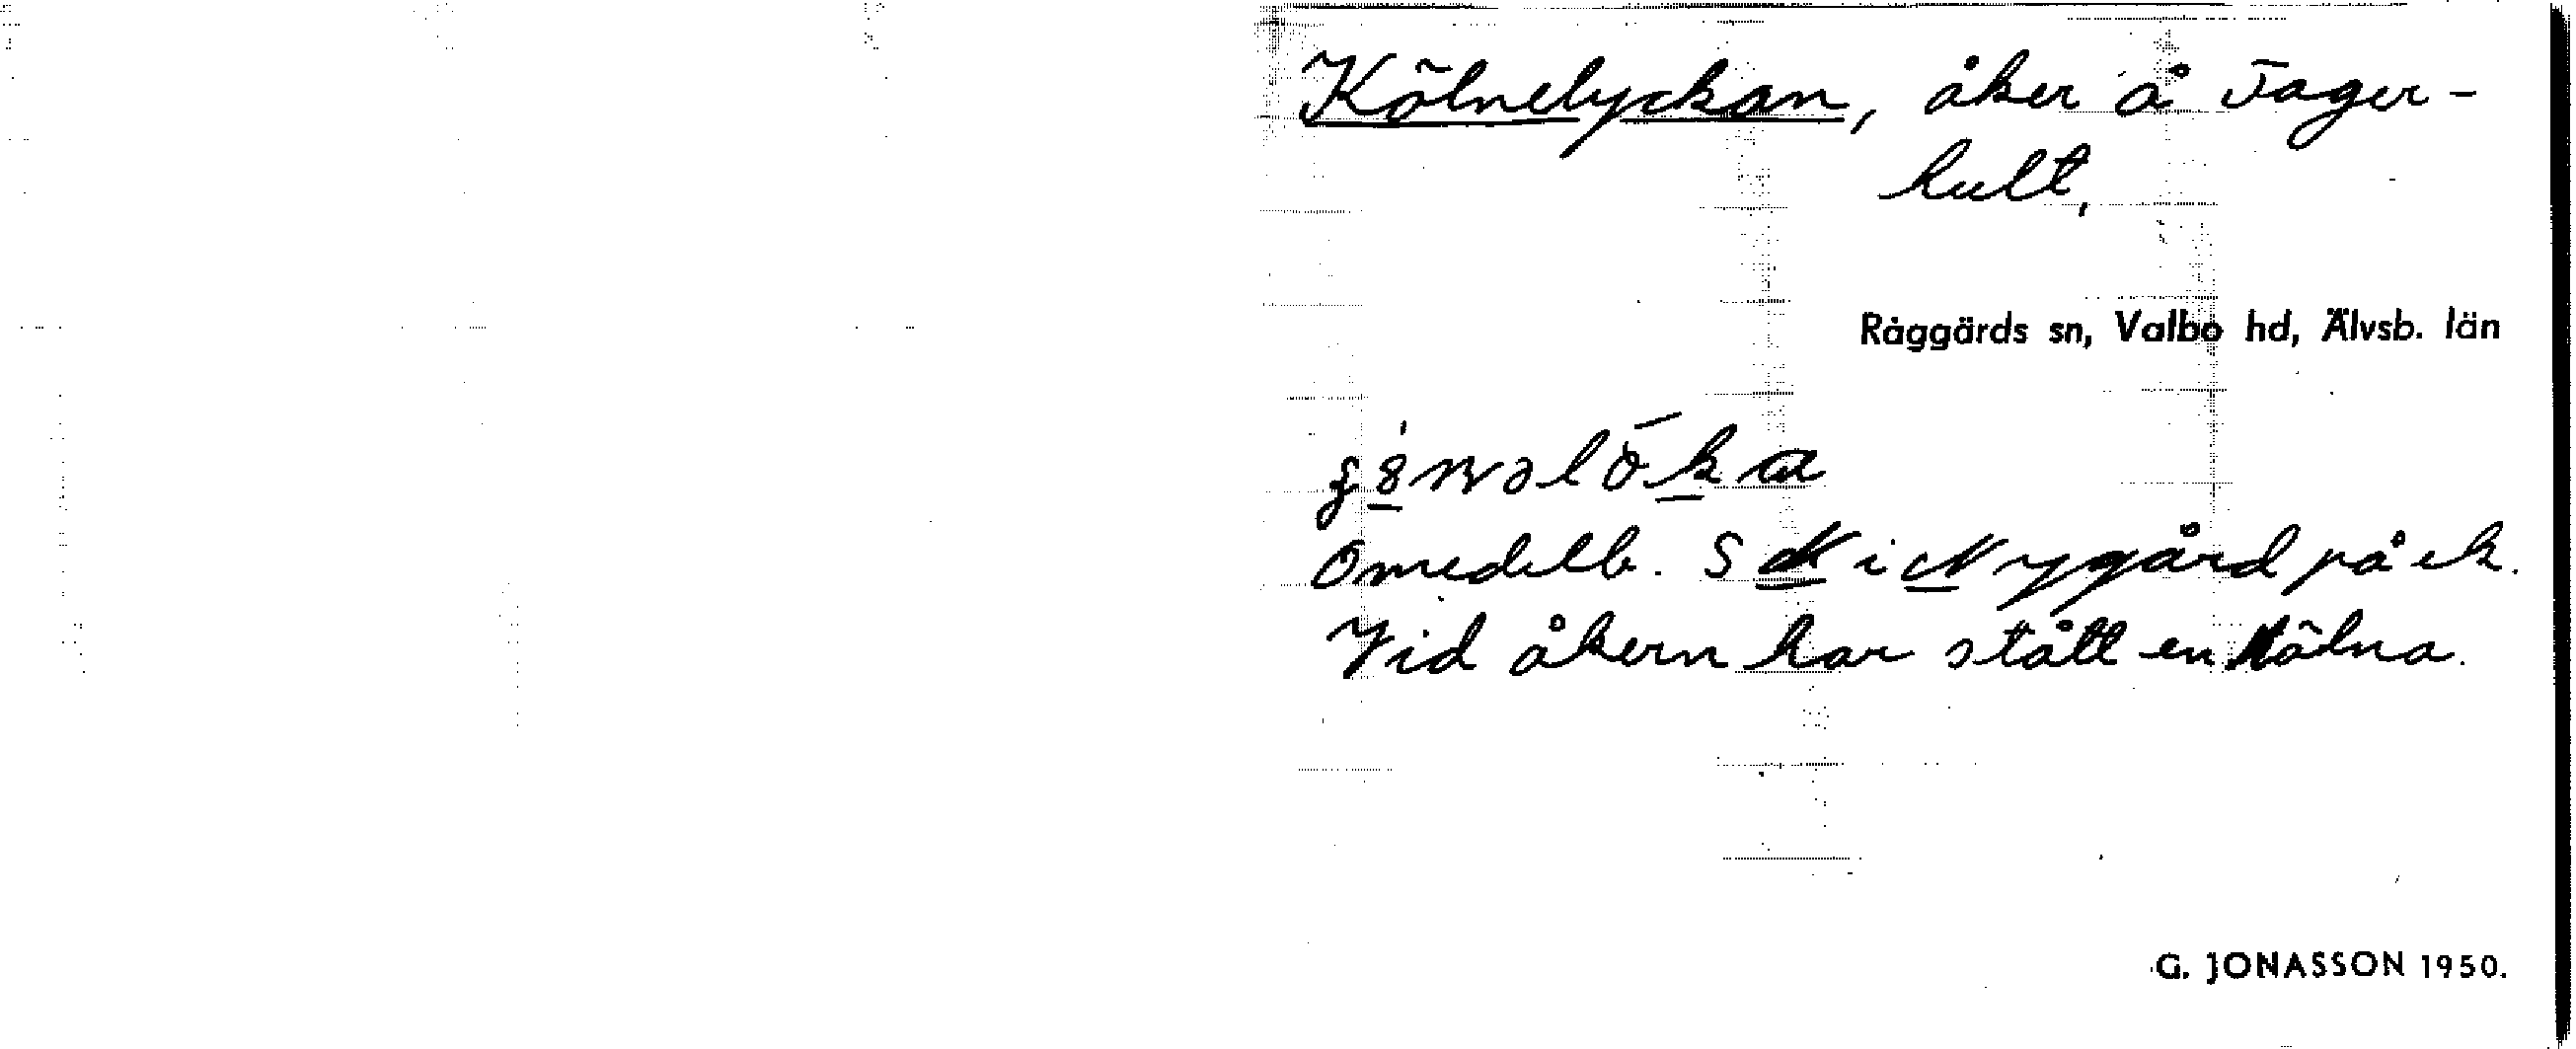 Kölnelyckan, åker å Jager-
hult,
Råggärds sn, Valbo hd, Älvsb. län
Omedelb. S N i Nygård på ek.
Vid åkern har stått en kölna.
G. JONASSON 1950.